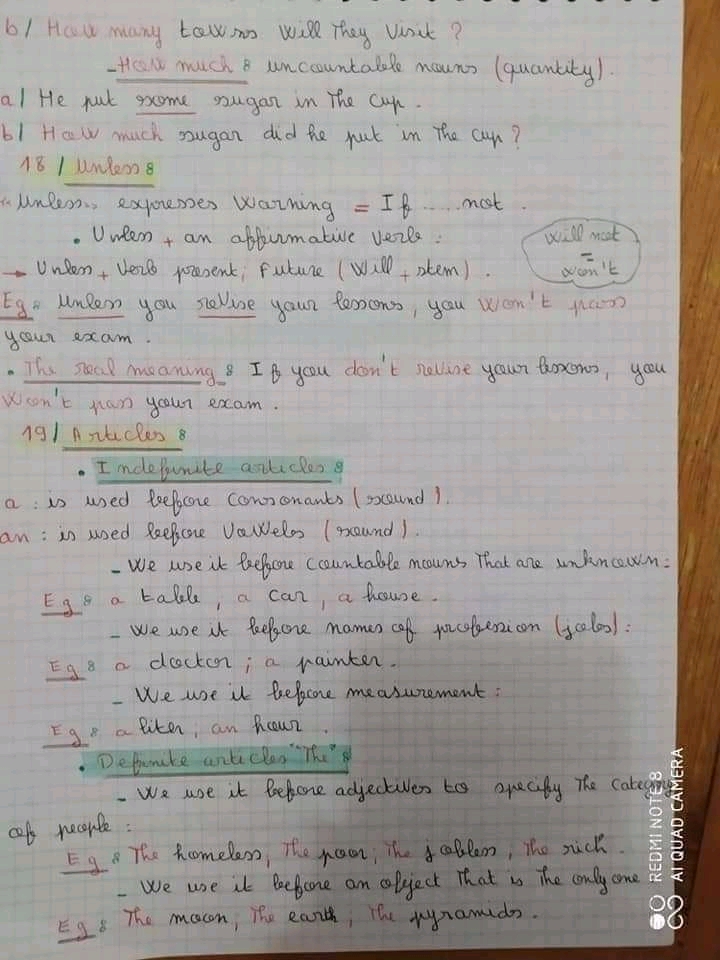 b/ How many towns will They visit ?
- How much : uncountable nouns (quantity).
a/ He put some sugar in The cup.
b/ How much sugar did he put in The cup ?
18/ Unless :
"Unless" expresses Warning = If ..... not.
• Unless + an affirmative verb :
→ Unless + Verb present, Future (Will + stem).
will not
=
won't
Eg : Unless you revise your lessons, you won't pass
your exam.
• The real meaning : If you don't revise your lessons, you
won't pass your exam.
19/ Articles :
• Indefinite articles :
a : is used before Consonants (sound).
an : is used before Vowels (sound).
- We use it before Countable nouns That are unknown :
Eg : a table, a car, a house.
- We use it before names of profession (jobs) :
Eg : a doctor ; a painter.
- We use it before measurement :
Eg : a liter, an hour.
• Definite articles "The" :
- We use it before adjectives to specify The Category
of people :
Eg : The homeless, The poor, The jobless, The rich.
- We use it before an object That is The only one
Eg : The moon, The earth, The pyramids.
REDMI NOTE 8
AI QUAD CAMERA